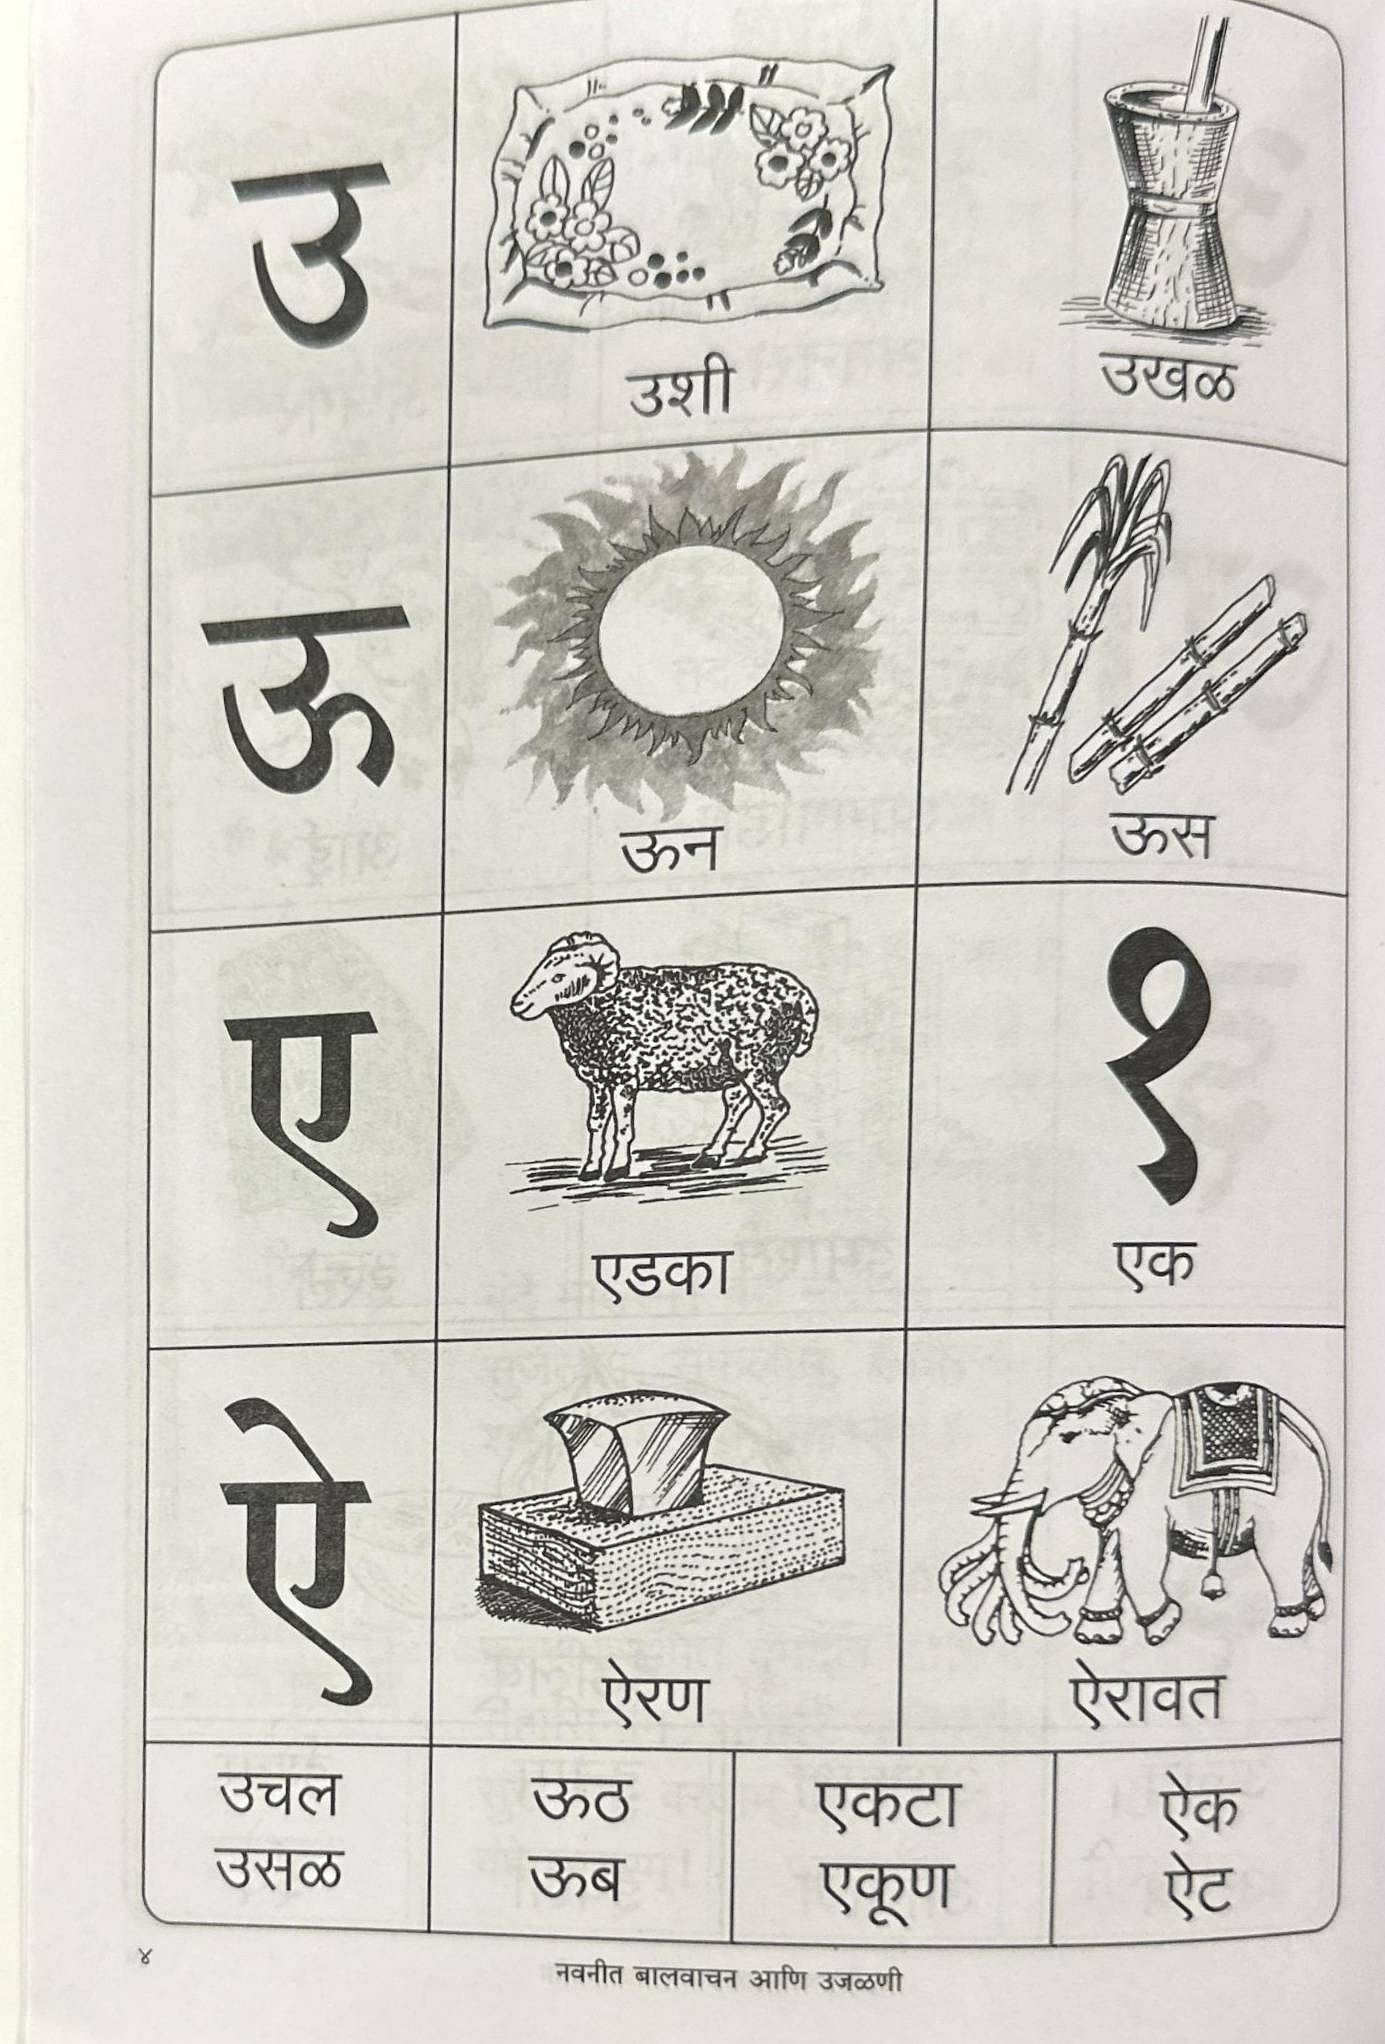 उ
उशी
उखळ
ऊ
ऊन
ऊस
ए
एडका
१
एक
ऐ
ऐरण
ऐरावत
उचल
उसळ
ऊठ
ऊब
एकटा
एकूण
ऐक
ऐट
४
नवनीत बालवाचन आणि उजळणी